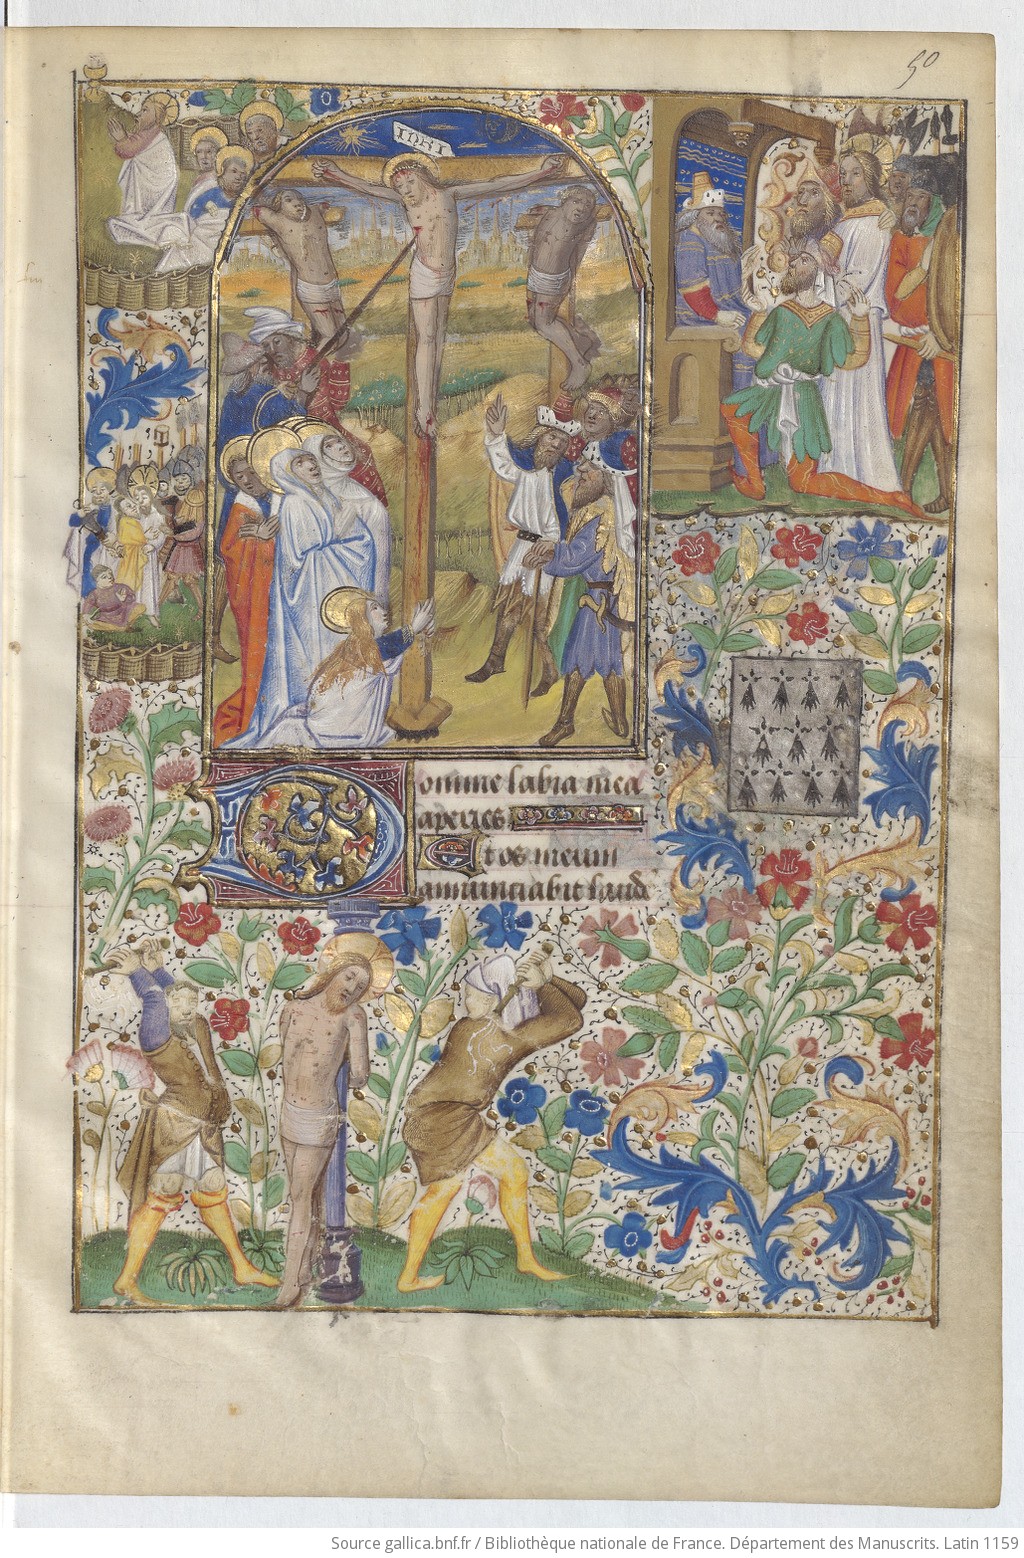 50
INRI
omine labia mea
aperies
Et os meum
annunciabit laudē
Source gallica.bnf.fr / Bibliothèque nationale de France. Département des Manuscrits. Latin 1159